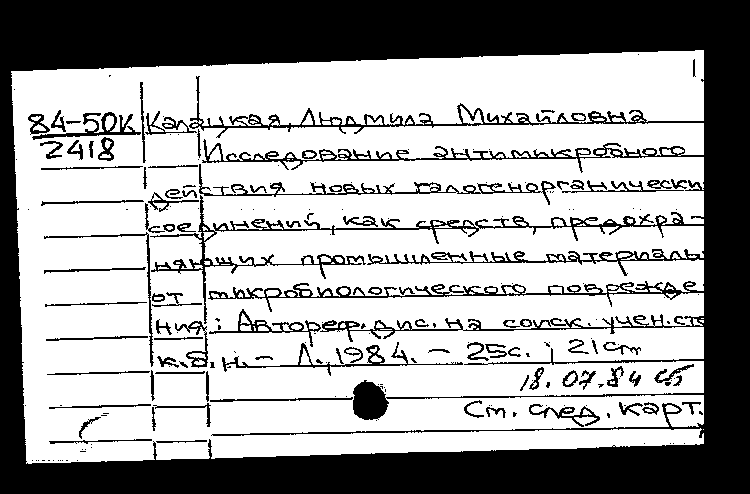 84-50К Калацкая, Людмила Михайловна
2418 Исследование антимикробного
действия новых галогенорганически
соединений, как средств, предохра-
няющих промышленные материалы
от микробиологического поврежде-
ния: Автореф. дис. на соиск. учен. сте
к.б.н. - Л., 1984. - 25с. ; 21см
18.07.84 сб
См. след. карт.